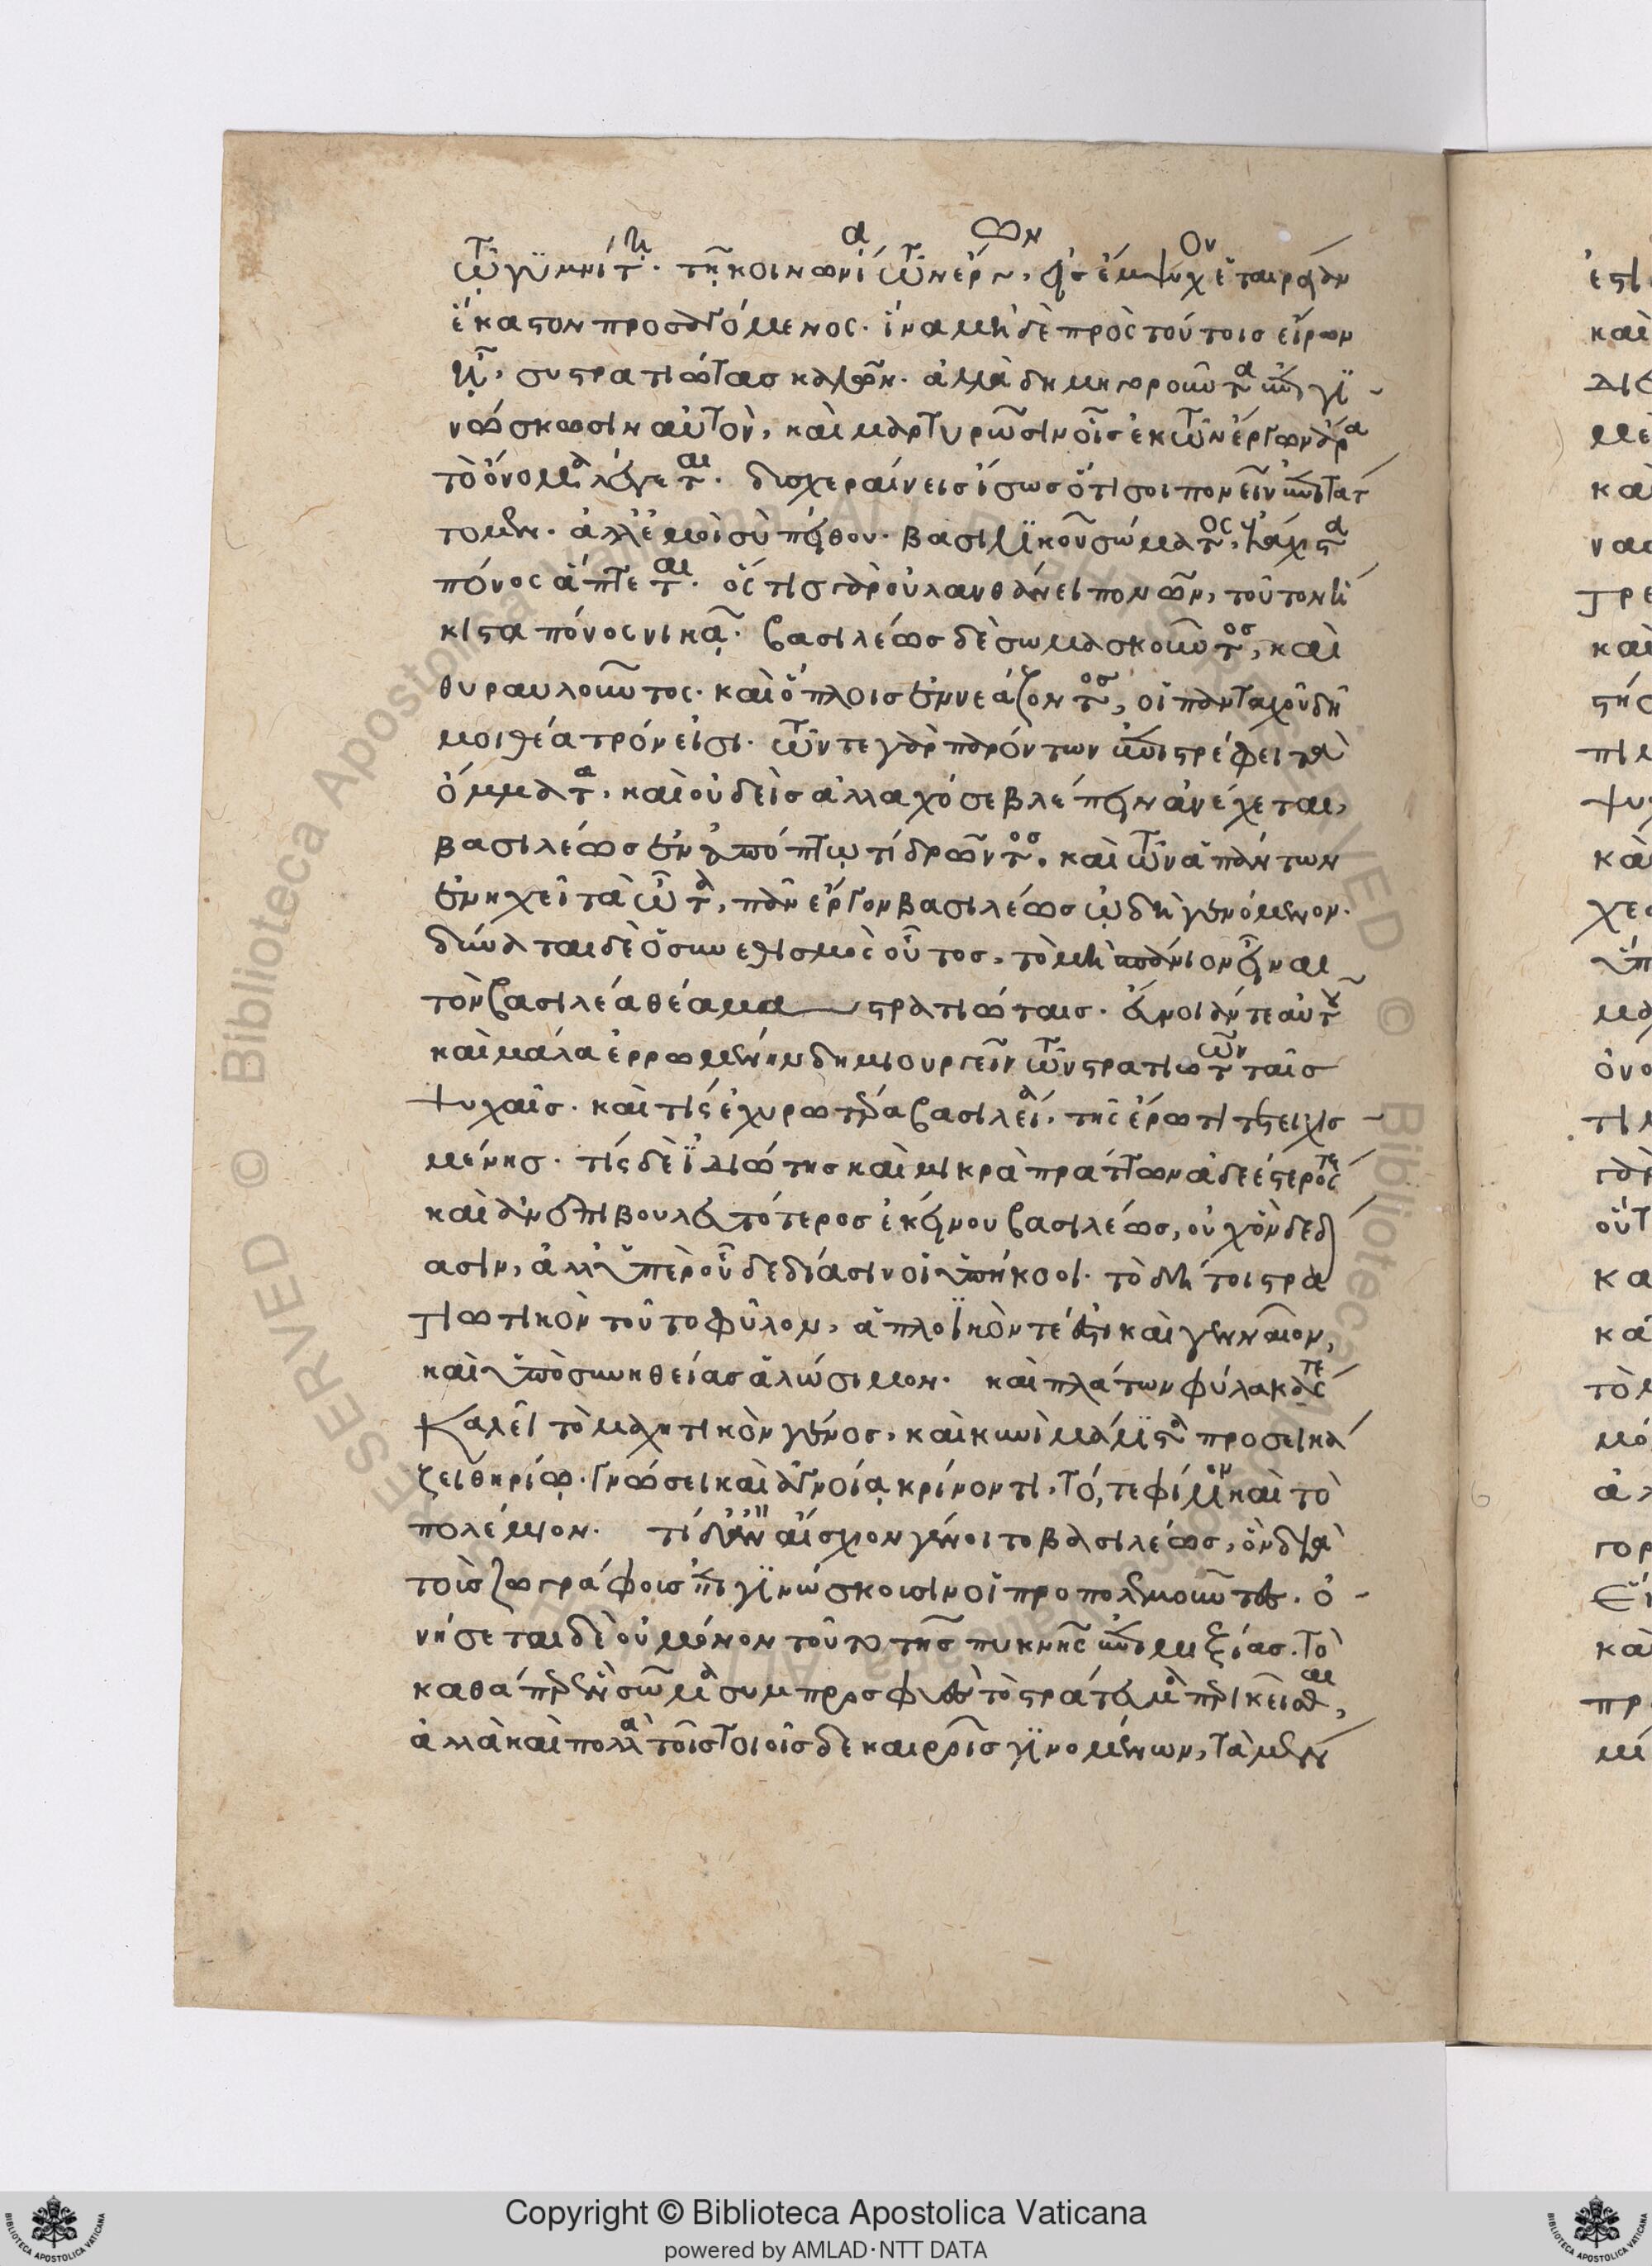 τῷ γυμνίτῃ. τῇ κοινωνίᾳ τῶν ἔργων, εἰς ἔμψυχον ἑταιρείαν
ἕκαστον προσαγόμενος. ἵνα μηδὲ πρὸς τούτοις εἴρων
ᾖ, συστρατιώτας καλῶν. ἀλλὰ δημηγοροῦντα ἐπιγι-
νώσκωσιν αὐτὸν, καὶ μαρτυρῶσιν οἷς ἐκ τῶν ἔργων ἄρα
τὸ ὄνομα λέγεται. δυσχεραίνεις ἴσως ὅτι σοι πονεῖν ἐπιτάτ
τομεν. ἀλλ' ἐμοὶ σὺ πείθου. βασιλικοῦ σώματος, ἥκιστα
πόνος ἅπτεται. ὅστις γὰρ οὐ λανθάνει πονῶν, τοῦτον ἥ
κιστα πόνος νικᾷ. βασιλέως δὲ σωμασκοῦντος, καὶ
θυραυλοῦντος. καὶ ὅπλοις ἐννεάζοντος, οἱ πανταχοῦ δή
μοι θέατρόν εἰσι. τῶν τε γὰρ παρόντων ἐπιστρέφει τὰ
ὄμματα, καὶ οὐδεὶς ἀλλαχόσε βλέπειν ἀνέχεται,
βασιλέως ἐν ὑπόπτῳ τί δρῶντος. καὶ τῶν ἁπάντων
ἐνηχεῖ τὰ ὦτα, πᾶν ἔργον βασιλέως ᾠδὴ γενόμενον.
δύναται δὲ ὁ συνεθισμὸς οὗτος, τὸ μὴ σπάνιον εἶναι
τὸν βασιλέα θέαμα στρατιώταις. εὔνοιάν τε αὐτοῦ
καὶ μάλα ἐρρωμένην δημιουργεῖν τῶν στρατιωτῶν ταῖς
ψυχαῖς. καὶ τίς ἐχυρωτέρα βασιλεία, τῆς ἔρωτι τετειχισ-
μένης. τίς δὲ ἰδιώτης καὶ μικρὰ πράττων ἀδεέστερός τε
καὶ ἀνεπιβουλευτότερος ἐκείνου βασιλέως, οὐχ ὃν δεδί
ασιν, ἀλλ' ὑπὲρ οὗ δεδίασιν οἱ ὑπήκοοι. τὸ δή τοι στρα
τιωτικὸν τοῦτο φῦλον, ἁπλοϊκόν τέ ἐστι καὶ γενναῖον,
καὶ ὑπὸ συνηθείας ἁλώσιμον. καὶ πλάτων φύλακάς τε
καλεῖ τὸ μαχητικὸν γένος, καὶ κυνὶ μάλιστα προσεικά
ζει θηρίῳ. γνώσει καὶ ἀγνοίᾳ κρίνοντι, τό, τε φίλιον καὶ τὸ
πολέμιον. τί δ' ἂν αἴσχιον γένοιτο βασιλέως, ὃν διὰ
τοῖς ζωγράφοις ἐπιγινώσκουσιν οἱ προπολεμοῦντες. ὀ-
νήσεται δὲ οὐ μόνον τοῦτο τῆς πυκνῆς ἐπιμιξίας. τὸ
καθάπερ ἓν σῶμα συμπροσφυὲς τὸ στράτευμα περικεῖσθαι,
ἀλλὰ καὶ πολλὰ τοῖς τοιοῖσδε καιροῖς γινομένων, τὰ μὲν